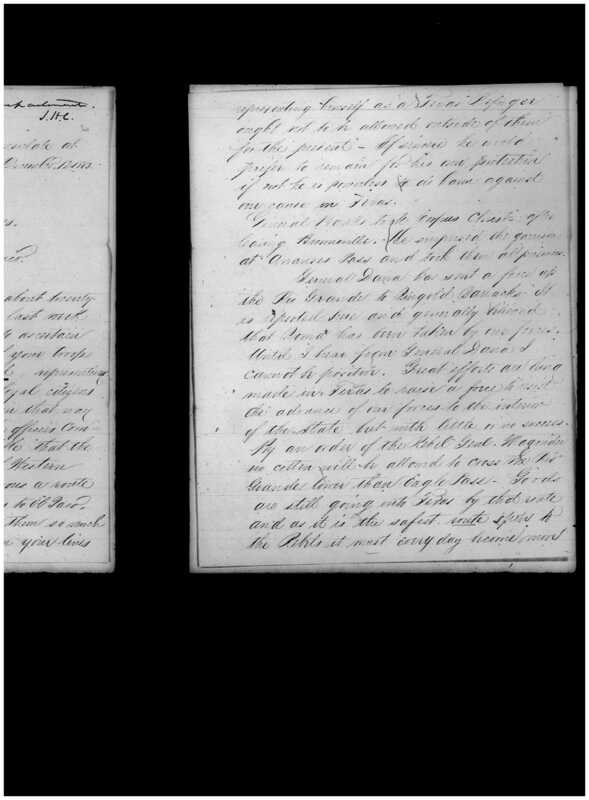 J.H.C.
at
about twenty
last week
to ascertain
your troops
representing
loyal citizens
that way
officers Com-
that the
Western
a route
to El Paso.
them so much
your lines
representing himself as a Texas Refugee
ought not to be allowed outside of them
for the present – If sincere he would
prefer to remain for his own protection
if not he is powerless to do harm against
our cause in Texas.
General Banks took Corpus Christi after
leaving Brownsville. He surprised the garrison
at Aransas Pass and took them all prisoners.
General Dana has sent a force up
the Rio Grande to Ringold Barracks. It
is reported here and generally believed
that Roma has been taken by our forces.
Until I hear from General Dana I
cannot be positive. Great efforts are being
made in Texas to raise a force to resist
the advance of our forces to the interior
of the State but with little or no success.
By an order of the Rebel Genl. Magruder
no cotton will be allowed to cross the Rio
Grande lower than Eagle Pass – Goods
are still going into Texas by that route
and as it is the safest route open to
the Rebels it must every day become more